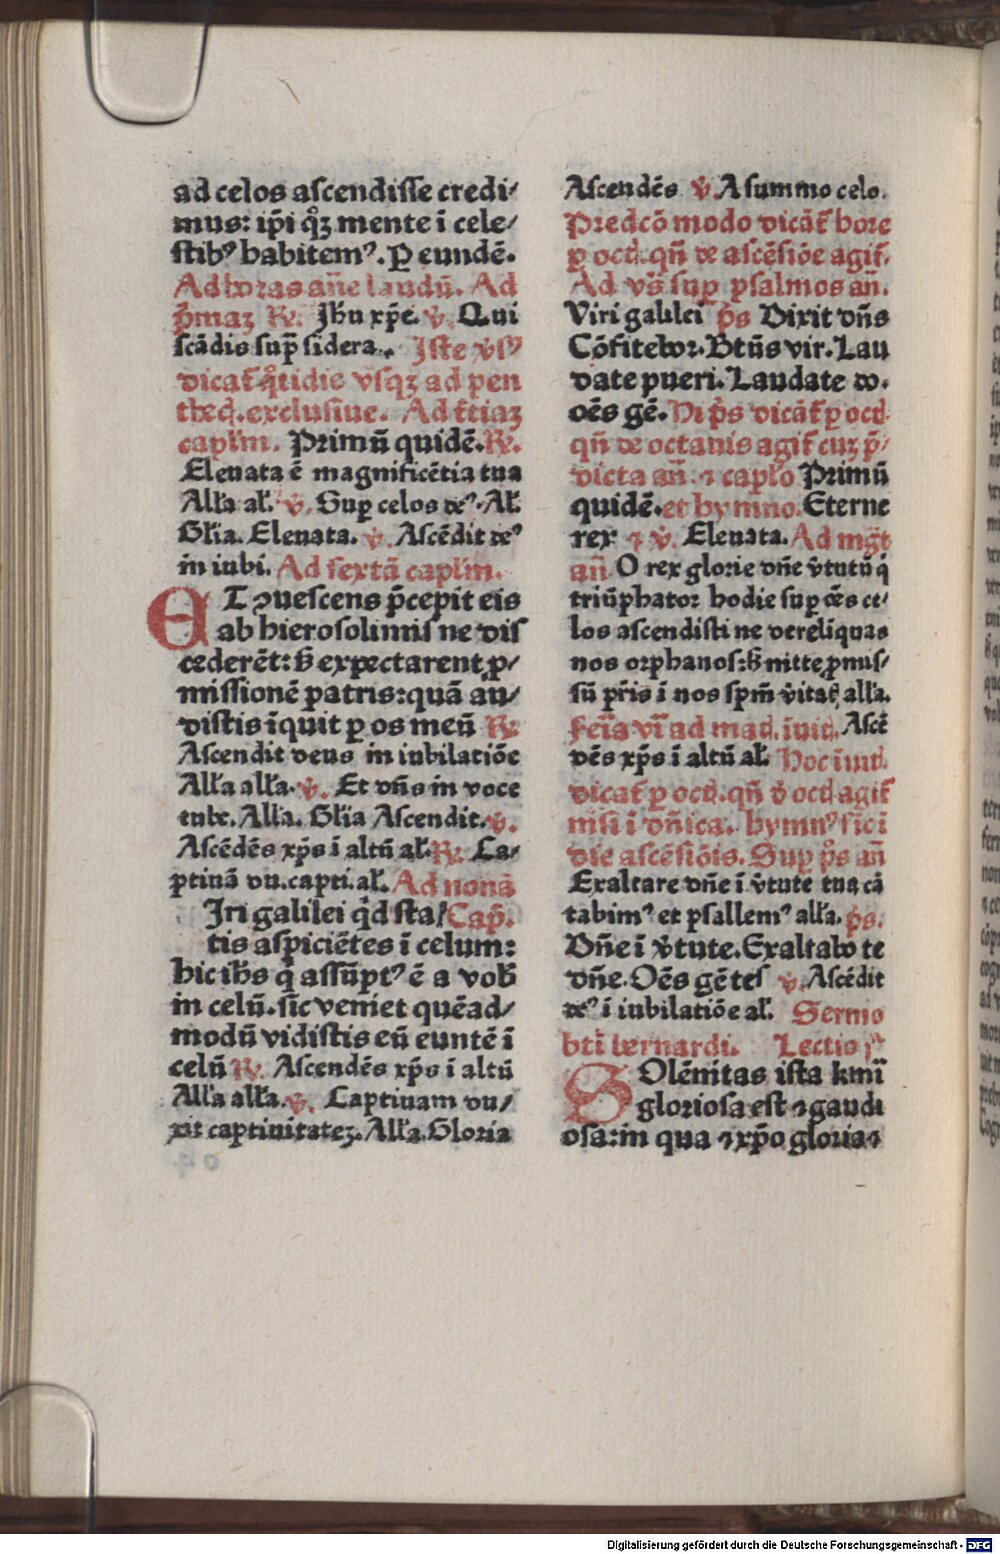 ad celos ascendisse credi/
mus: ip̄i qͦꝫ mente ī cele/
stibꝰ habitemꝰ. Ꝑ eundē.
Ad horas an̄e laudū. Ad
p̄maꝫ ℞. Jh̄u xp̄e. ℣. Qui
scādis sup̄ sidera. Iste v̓sꝰ
dicat̄ q̄tidie vsqꝫ ad pen
thec̄. exclusiue. Ad t̄tiaꝫ
capl̄m. Primū quidē. ℞.
Eleuata ē magnificētia tua
Alł̄a ał̄. ℣. Sup̄ celos deꝰ. Ał̄.
Gł̄ia. Eleuata. ℣. Ascēdit deꝰ
in iubi. Ad sextā capl̄m.
ET ꝯuescens p̄cepit eis
ab hierosolimis ne dis
cederēt: sꝫ expectarent ꝓ/
missionē patris: quā au/
distis īquit ꝑ os meū ℞.
Ascendit deus in iubilatiōe
Alł̄a alł̄a. ℣. Et dn̄s in voce
tube. Alł̄a. Gł̄ia Ascendit. ℣.
Ascēdēs xp̄s ī altū ał̄. ℞. Ca/
ptiuā du. capti. ał̄. Ad nonā
Iri galilei q̇d sta/ Cap̄.
tis aspiciētes ī celum:
hic ih̄s q̇ assūptꝰ ē a vob̄
in celū. sic veniet quēad/
modū vidistis eū euntē ī
celū ℞. Ascendēs xp̄s ī altū
Alł̄a alł̄a. ℣. Captiuam du/
xit captiuitateꝫ. Alł̄a. Gloria
Ascendēs ℣. A summo celo.
Predcō modo dicāt̄ hore
ꝑ oct̄. qn̄ de ascēsiōe agit̄.
Ad vs̄ꝫ sup̄ psalmos an̄.
Viri galilei p̄s Dixit dn̄s
Cōfitebor. Bt̄us vir. Lau
date pueri. Laudate do.
oēs gē. Hi p̄s dicāt̄ ꝑ oct̄
qn̄ de octauis agit̄ cuꝫ p̄/
dicta an̄. ⁊ capł̄o Primū
quidē. et hymno. Eterne
rex ⁊ ℣. Eleuata. Ad mgt̄
an̄ O rex glorie dn̄e v̓tutū q̇
triūphator hodie sup̄ oēs ce/
los ascendisti ne derelīquas
nos orphanos: sꝫ mitte ꝓmis/
sū pr̄is ī nos spm̄ v̓itat̄ alł̄a.
Feria vī ad mat̄. īuit̄. Ascē
dēs xp̄s ī altū ał̄. Hoc īuit̄.
dicat̄ ꝑ oct̄. qn̄ d̓ oct̄ agit̄
nisi ī dn̄ica. hymnꝰ sic ī
die ascēsiōis. Sup̄ p̄s an̄
Exaltare dn̄e ī v̓tute tua cā
tabimꝰ et psallemꝰ alł̄a. p̄s.
Dn̄e ī v̓tute. Exaltabo te
dn̄e. Oēs gētes ℣. Ascēdit
deꝰ ī iubilatiōe ał̄. Sermo
bt̄i bernardi. Lectio
SOlēnitas ista kmī
gloriosa est ⁊ gaudi
osa: in qua ⁊ xp̄o gloria ⁊
Digitalisierung gefördert durch die Deutsche Forschungsgemeinschaft - DFG